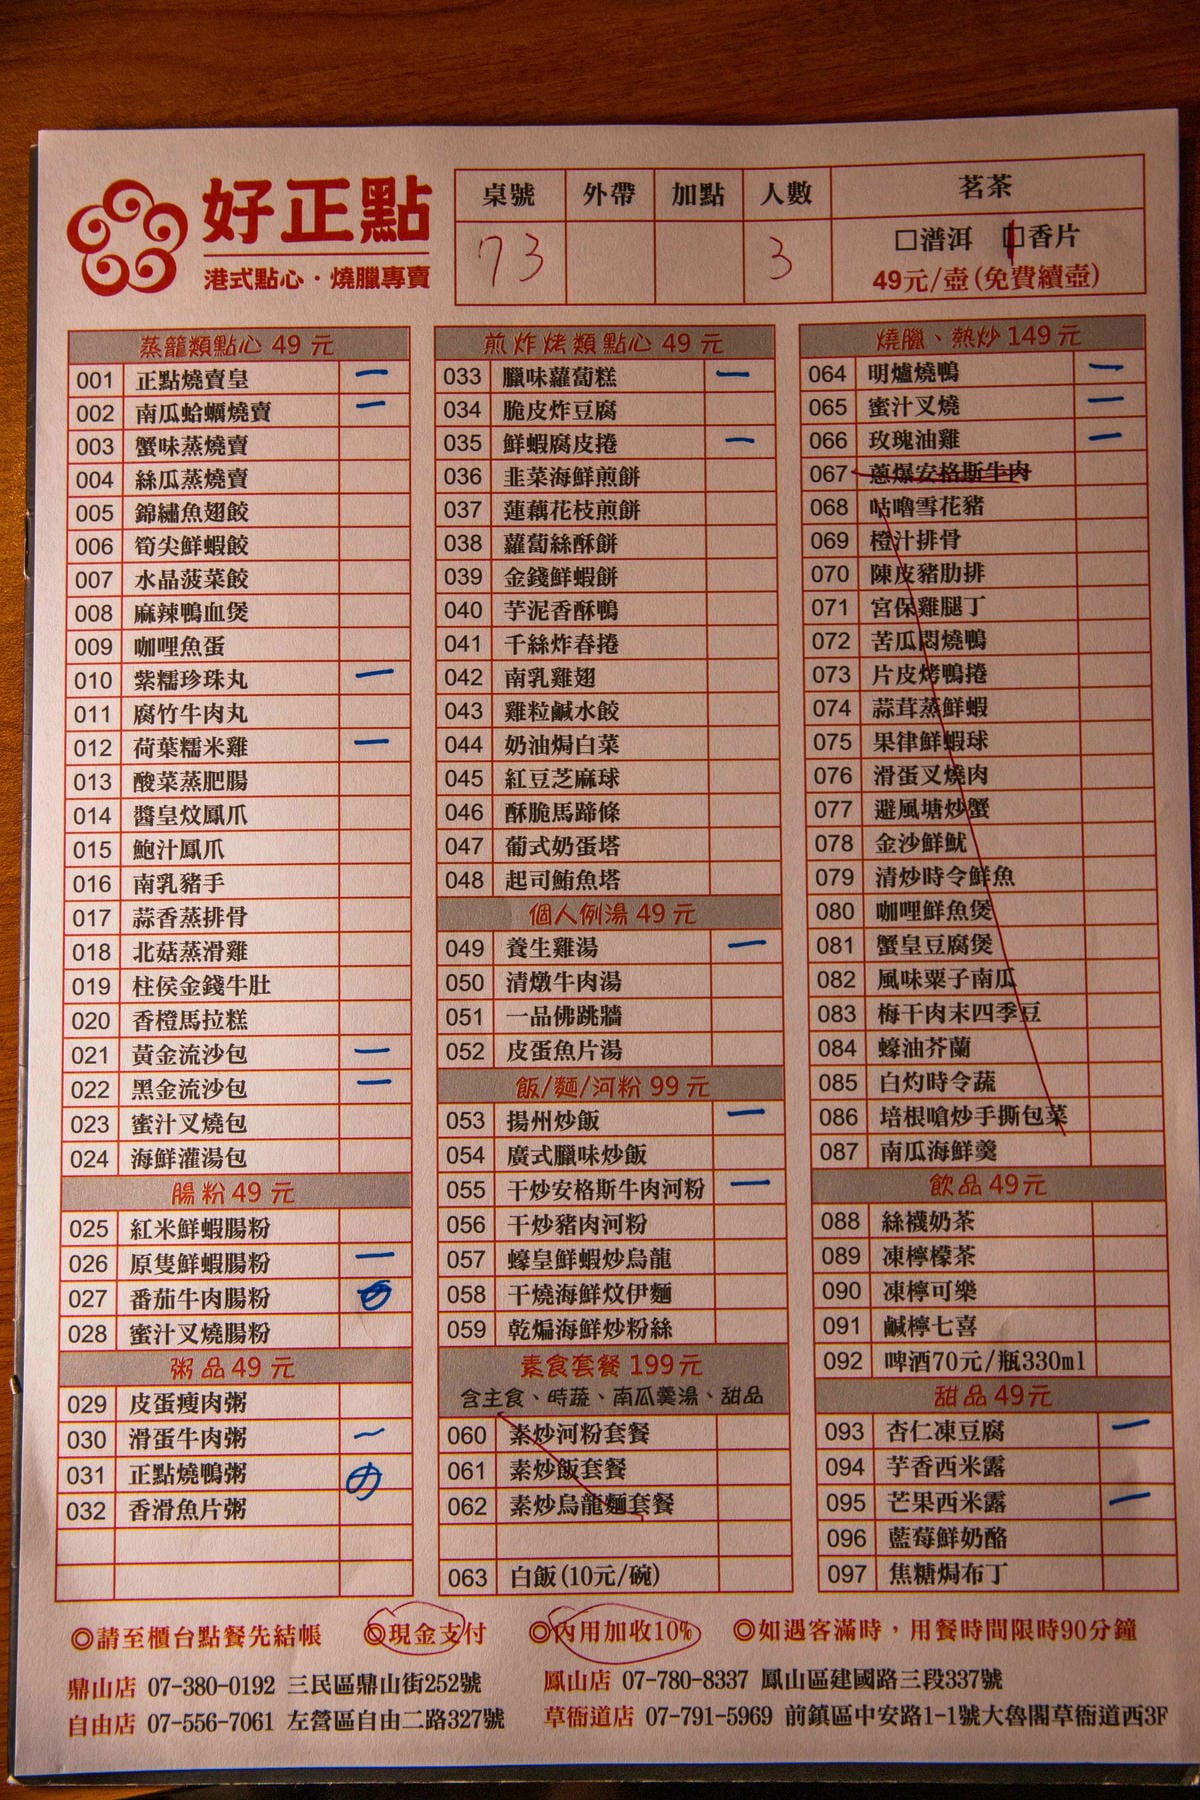 好正點
港式點心・燒臘專賣
桌號 外帶 加點 人數 茗茶
73 3 □潽洱 □香片
49元/壺(免費續壺)
蒸籠類點心 49 元
001 正點燒賣皇 一
002 南瓜蛤蠣燒賣 一
003 蟹味蒸燒賣
004 絲瓜蒸燒賣
005 錦繡魚翅餃
006 筍尖鮮蝦餃
007 水晶菠菜餃
008 麻辣鴨血煲
009 咖哩魚蛋
010 紫糯珍珠丸 一
011 腐竹牛肉丸
012 荷葉糯米雞 一
013 酸菜蒸肥腸
014 醬皇炆鳳爪
015 鮑汁鳳爪
016 南乳豬手
017 蒜香蒸排骨
018 北菇蒸滑雞
019 柱侯金錢牛肚
020 香橙馬拉糕
021 黃金流沙包 一
022 黑金流沙包 一
023 蜜汁叉燒包
024 海鮮灌湯包
腸粉 49 元
025 紅米鮮蝦腸粉
026 原隻鮮蝦腸粉 一
027 番茄牛肉腸粉
028 蜜汁叉燒腸粉
粥品 49 元
029 皮蛋瘦肉粥
030 滑蛋牛肉粥 一
031 正點燒鴨粥
032 香滑魚片粥
煎炸烤類點心 49 元
033 臘味蘿蔔糕 一
034 脆皮炸豆腐
035 鮮蝦腐皮捲 一
036 韭菜海鮮煎餅
037 蓮藕花枝煎餅
038 蘿蔔絲酥餅
039 金錢鮮蝦餅
040 芋泥香酥鴨
041 千絲炸春捲
042 南乳雞翅
043 雞粒鹹水餃
044 奶油焗白菜
045 紅豆芝麻球
046 酥脆馬蹄條
047 葡式奶蛋塔
048 起司鮪魚塔
個人例湯 49 元
049 養生雞湯 一
050 清燉牛肉湯
051 一品佛跳牆
052 皮蛋魚片湯
飯/麵/河粉 99 元
053 揚州炒飯 一
054 廣式臘味炒飯
055 干炒安格斯牛肉河粉 一
056 干炒豬肉河粉
057 蠔皇鮮蝦炒烏龍
058 干燒海鮮炆伊麵
059 乾煸海鮮炒粉絲
素食套餐 199 元
含主食、時蔬、南瓜羹湯、甜品
060 素炒河粉套餐
061 素炒飯套餐
062 素炒烏龍麵套餐
063 白飯(10元/碗)
燒臘、熱炒 149 元
064 明爐燒鴨 一
065 蜜汁叉燒 一
066 玫瑰油雞 一
067 蔥爆安格斯牛肉
068 咕嚕雪花豬
069 橙汁排骨
070 陳皮豬肋排
071 宮保雞腿丁
072 苦瓜悶燒鴨
073 片皮烤鴨捲
074 蒜茸蒸鮮蝦
075 果律鮮蝦球
076 滑蛋叉燒肉
077 避風塘炒蟹
078 金沙鮮魷
079 清炒時令鮮魚
080 咖哩鮮魚煲
081 蟹皇豆腐煲
082 風味粟子南瓜
083 梅干肉末四季豆
084 蠔油芥蘭
085 白灼時令蔬
086 培根嗆炒手撕包菜
087 南瓜海鮮羹
飲品 49元
088 絲襪奶茶
089 凍檸檬茶
090 凍檸可樂
091 鹹檸七喜
092 啤酒70元/瓶330ml
甜品 49元
093 杏仁凍豆腐 一
094 芋香西米露
095 芒果西米露 一
096 藍莓鮮奶酪
097 焦糖焗布丁
◎請至櫃台點餐先結帳 ◎現金支付 ◎內用加收10% ◎如遇客滿時，用餐時間限時90分鐘
鼎山店 07-380-0192 三民區鼎山街252號 鳳山店 07-780-8337 鳳山區建國路三段337號
自由店 07-556-7061 左營區自由二路327號 草衙道店 07-791-5969 前鎮區中安路1-1號大魯閣草衙道西3F